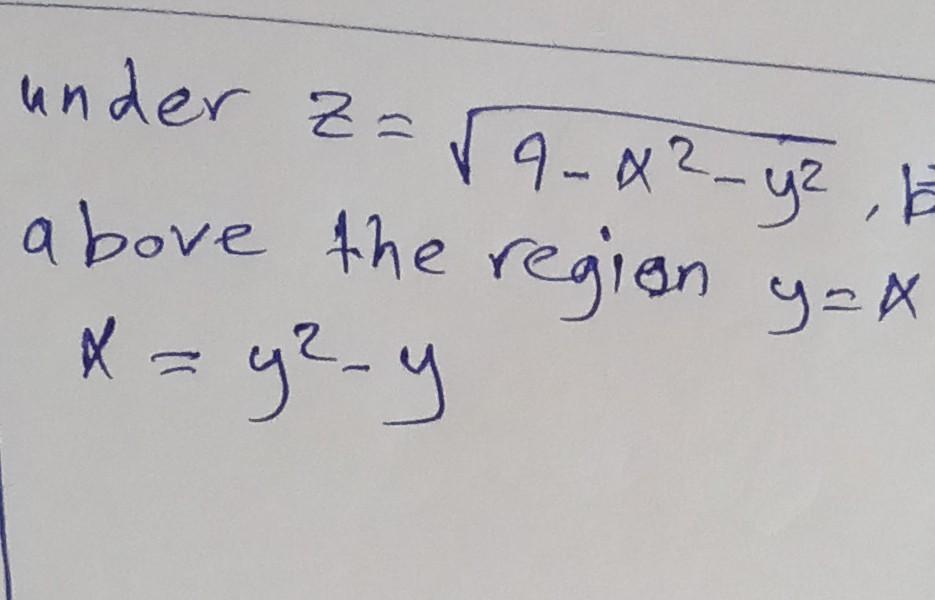 under z = √(9 - x² - y²),
above the region y = x
x = y² - y